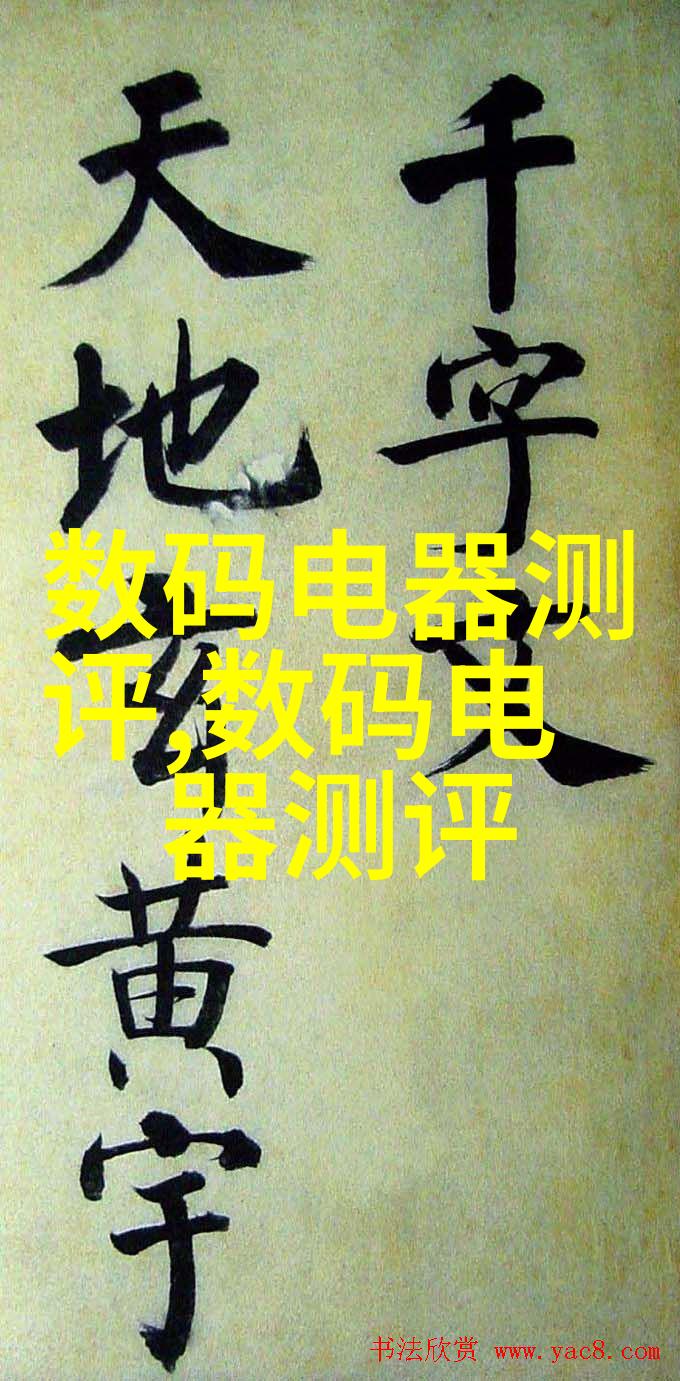 千字文
天地玄黄宇
数码电器测
评,数码电
器测评
书法欣赏 www.yac8.com